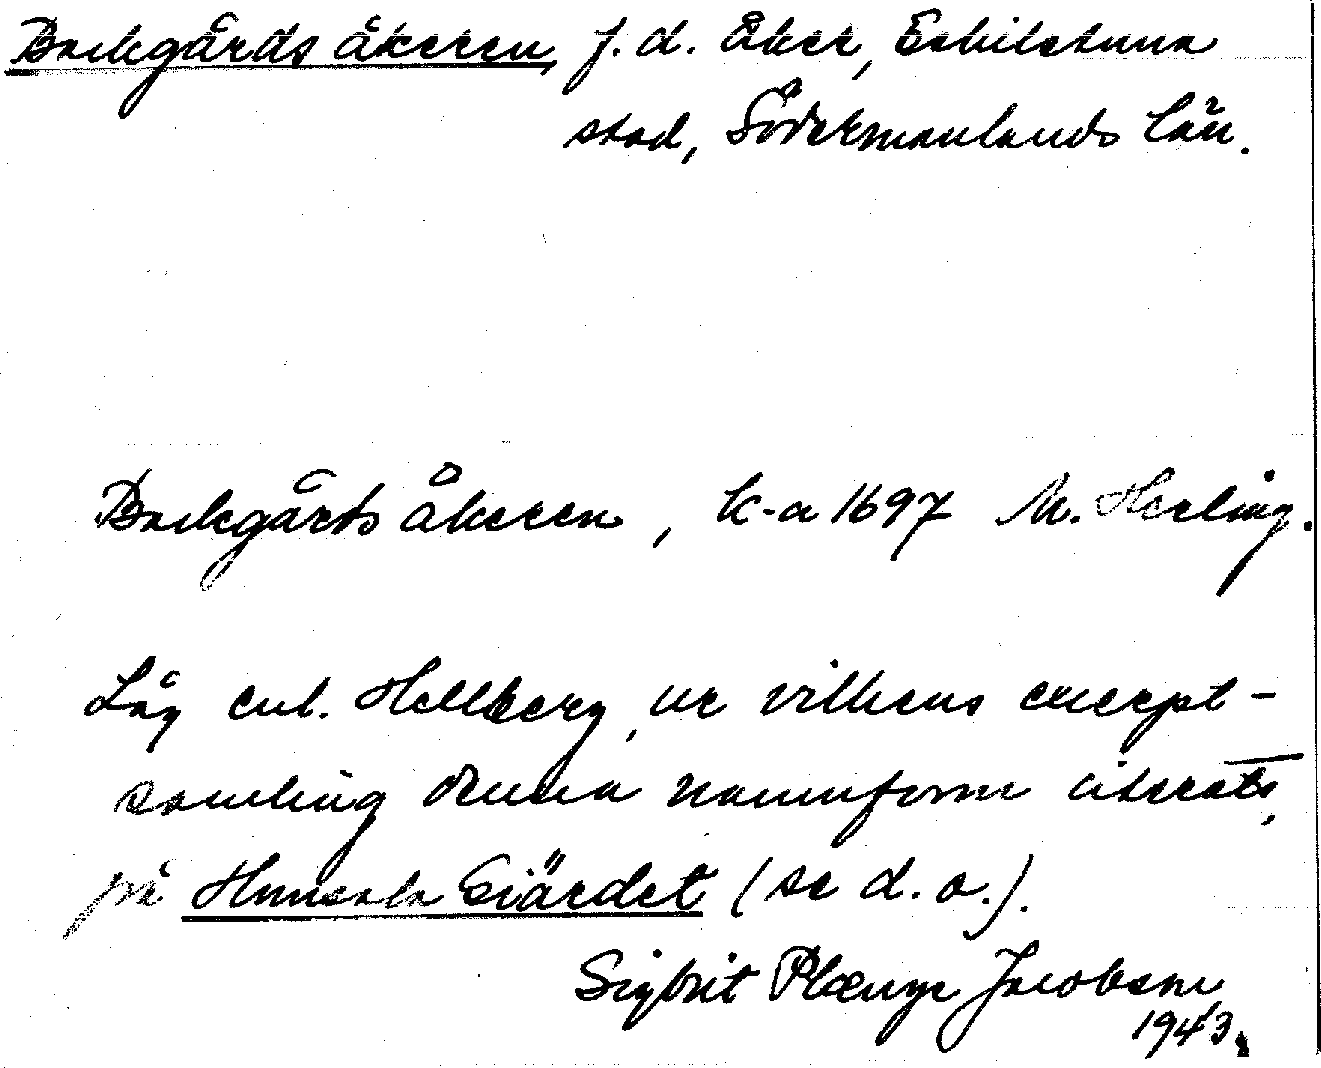 Backgårds åkeren, f. d. åker, Eskilstuna
stad, Södermanlands län.
Backgårts åkeren, k-a 1697 M. Herling.
Låg enl. Hellberg, ur vilkens excerpt-
samling denna namnform citerats,
på Hunsala Giärdet (se d. o.).
Sigbrit Plænge Jacobson
1943.